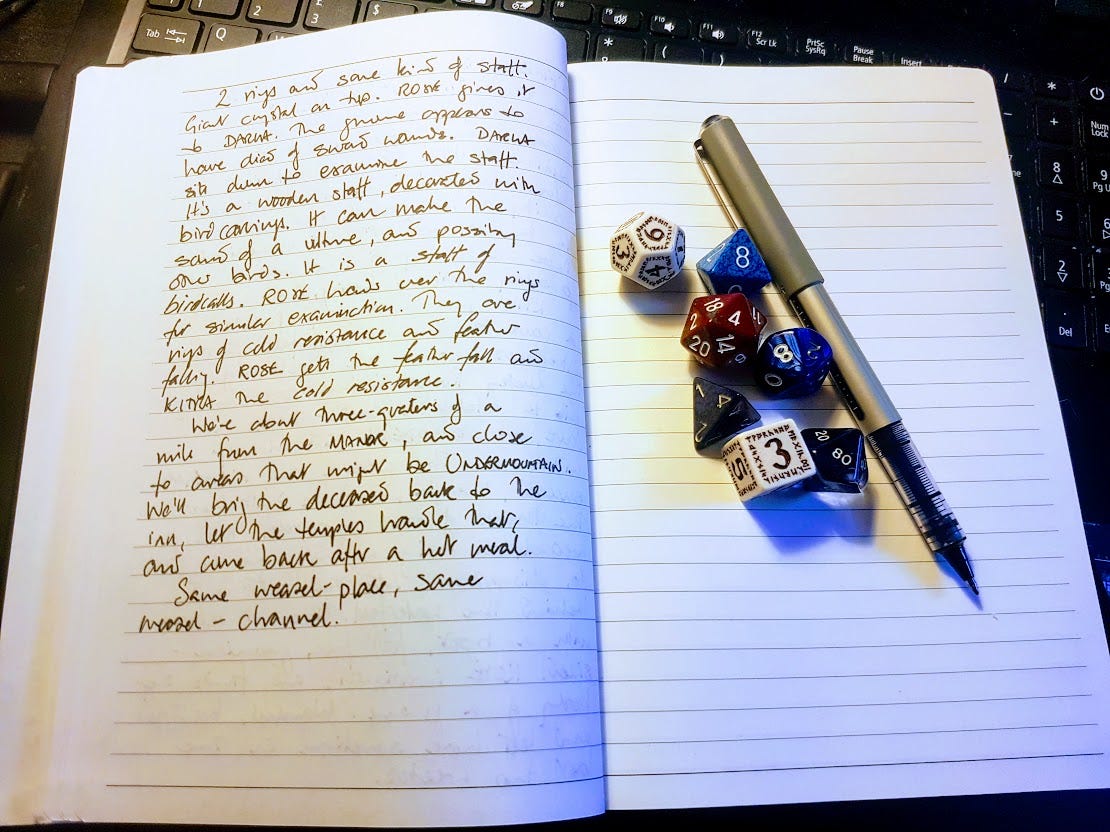 2 rings and some kind of staff.
Giant crystal on top. ROSE gives it
to DARHA. The gnome appears to
have died of sword wounds. DARHA
sits down to examine the staff.
It's a wooden staff, decorated with
bird carvings. It can make the
sound of a vulture, and possibly
other birds. It is a staff of
birdcalls. ROSE hands over the rings
for similar examination. They are
rings of cold resistance and feather
falling. ROSE gets the feather fall and
the cold resistance.
We're about three-quaters of a
mile from the MANOR, and close
to areas that might be UNDERMOUNTAIN.
We'll bring the deceased back to the
inn, let the temples handle that,
and come back after a hot meal.
Same weasel-place, same
weasel-channel!
Tab
Q
2
3
$
F9
F10
F11
F12
Scr Lk
PrtSc
SysRq
Pause
Break
Insert
*
(
)
*
+
Num
Lock
8
9
Pg U
5
2
3
Del
6
3
4
8
18
2
4
20
14
80
1
4
3
20
80